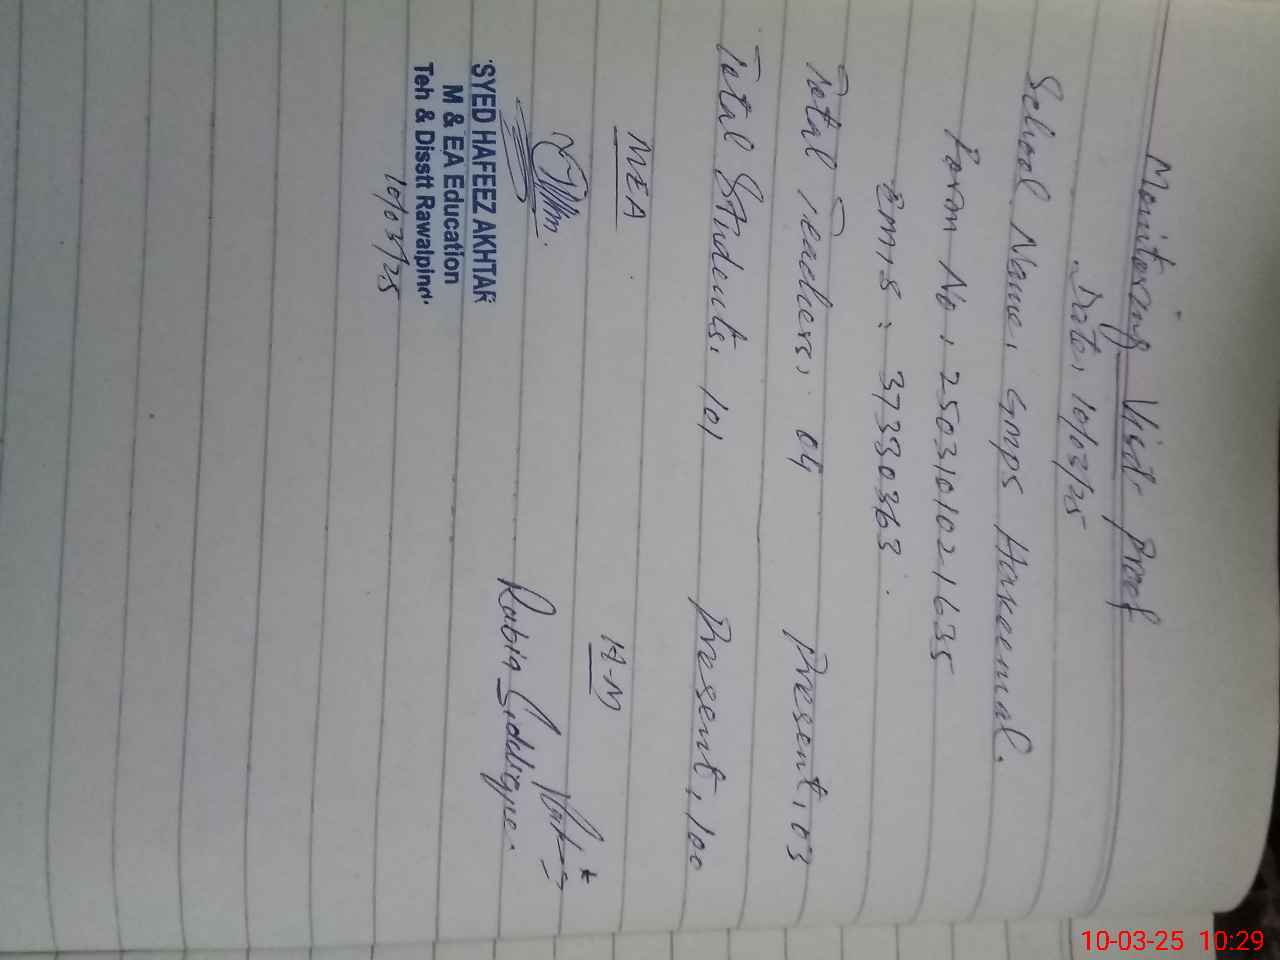 Monitoring Visit Proof
Date, 10/03/25
School Name, GMPS Hakeemal.
Form No, 250310102-1635
Emis: 37330363
Total Teachers, 04 Present, 03
Total Students, 101 Present, 100
MEA H-M
SYED HAFEEZ AKHTAR
M & EA Education
Teh & Disstt Rawalpindi
10/03/25
Rabia Siddique
10-03-25 10:29